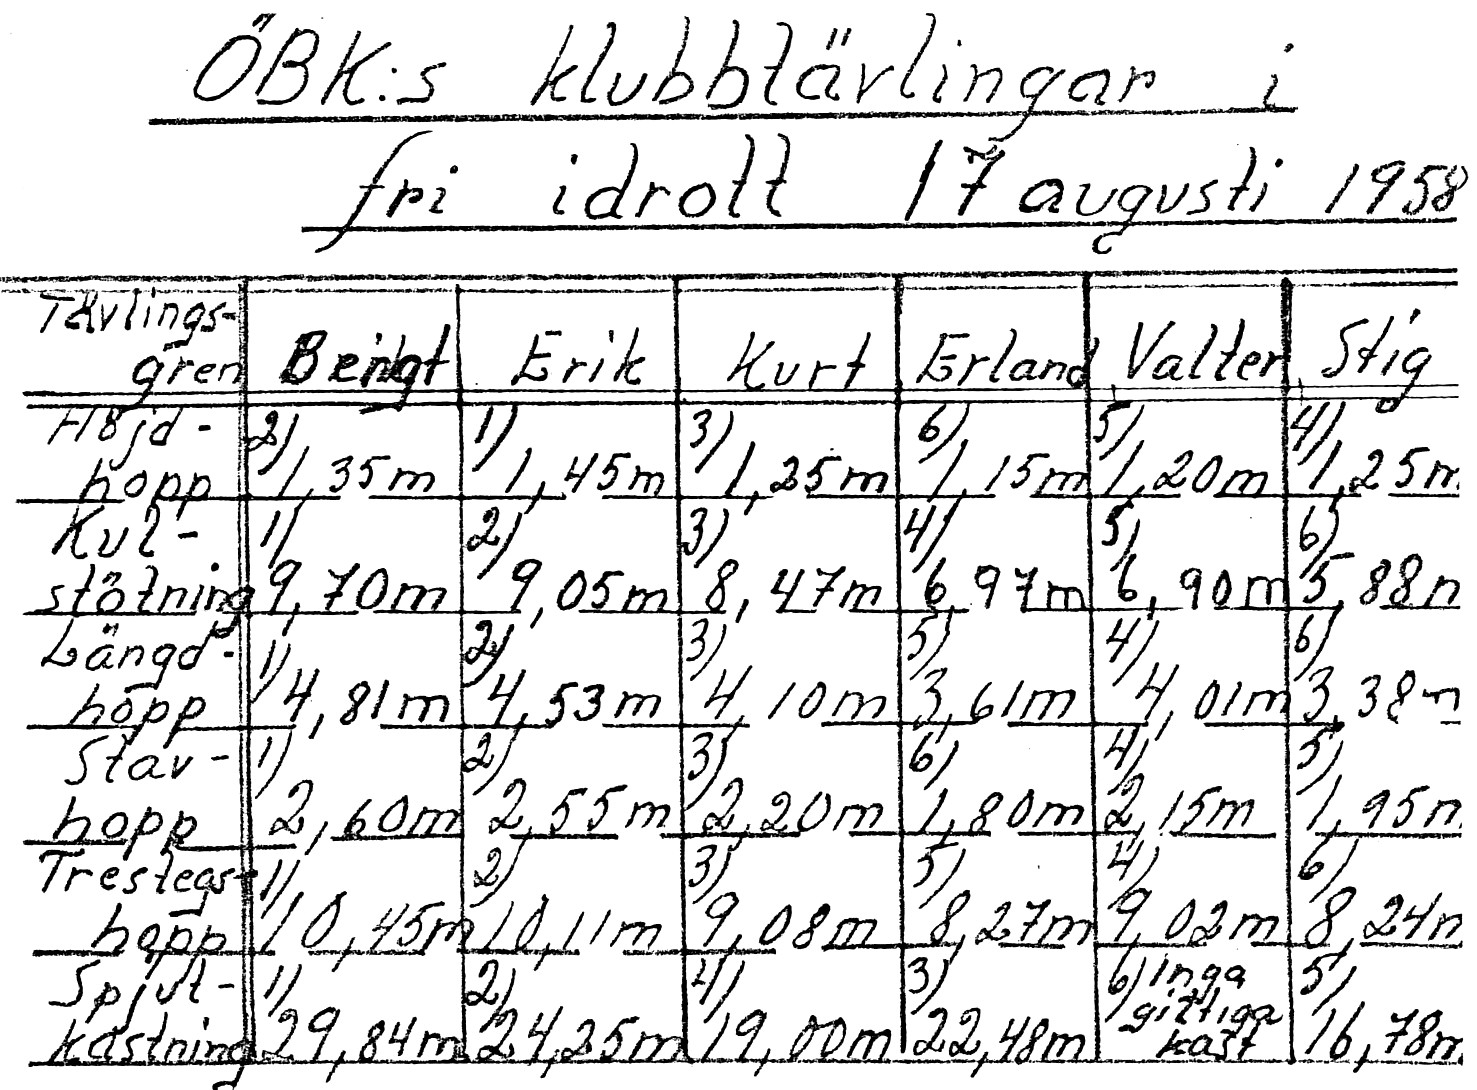 ÖBK:s klubbtävlingar i
fri idrott 17 augusti 1958
Tävlings-
gren Bengt Erik Kurt Erland Valter Stig
Höjd- 2) 1) 3) 6) 5) 4)
hopp 1,35m 1,45m 1,25m 1,15m 1,20m 1,25m
Kul- 1) 2) 3) 4) 5) 6)
stötning 9,70m 9,05m 8,47m 6,97m 6,90m 5,88m
Längd- 1) 2) 3) 5) 4) 6)
hopp 4,81m 4,53m 4,10m 3,61m 4,01m 3,38m
Stav- 1) 2) 3) 6) 4) 5)
hopp 2,60m 2,55m 2,20m 1,80m 2,15m 1,95m
Trestegs- 1) 2) 3) 5) 4) 6)
hopp 10,45m 10,11m 9,08m 8,27m 9,02m 8,24m
Spjut- 1) 2) 4) 3) 6) Inga 5)
giltiga
kastning 29,84m 24,25m 19,00m 22,48m kast 16,78m